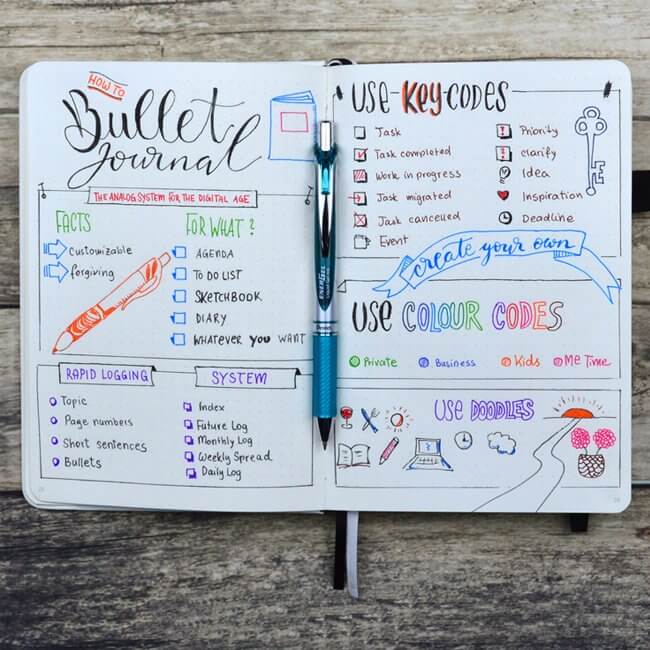 HOW TO
Bullet
Journal
THE ANALOG SYSTEM FOR THE DIGITAL AGE
FACTS
customizable
forgiving
FOR WHAT?
AGENDA
TO DO LIST
SKETCHBOOK
DIARY
WHATEVER YOU WANT
RAPID LOGGING
Topic
Page numbers
Short sentences
Bullets
SYSTEM
Index
Future Log
Monthly Log
Weekly Spread
Daily Log
ENERGEL
Pentel
USE KEY-CODES
Task
Task completed
Work in progress
Task migrated
Task cancelled
Event
Priority
Clarify
Idea
Inspiration
Deadline
create your own
USE COLOUR CODES
Private
Business
Kids
Me Time
USE DOODLES